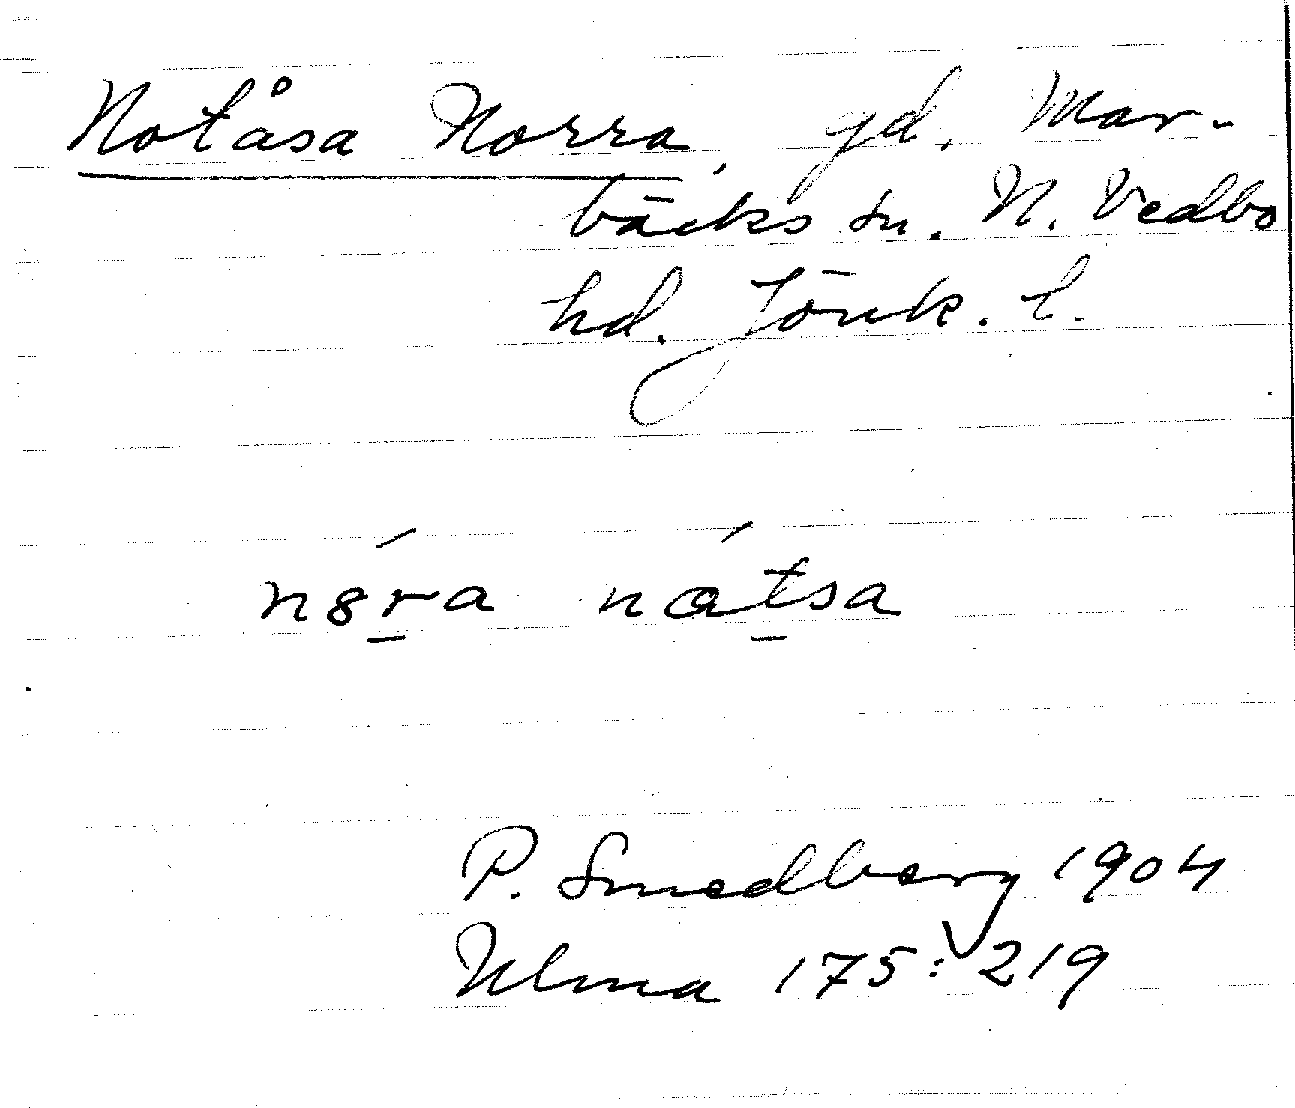 Notåsa Norra, gd. Mar-
bäcks sn. N. Vedbo
hd. Jönk. l.
n8r̲a nát̲sa
P. Smedberg 1904
Ulma 175: 219